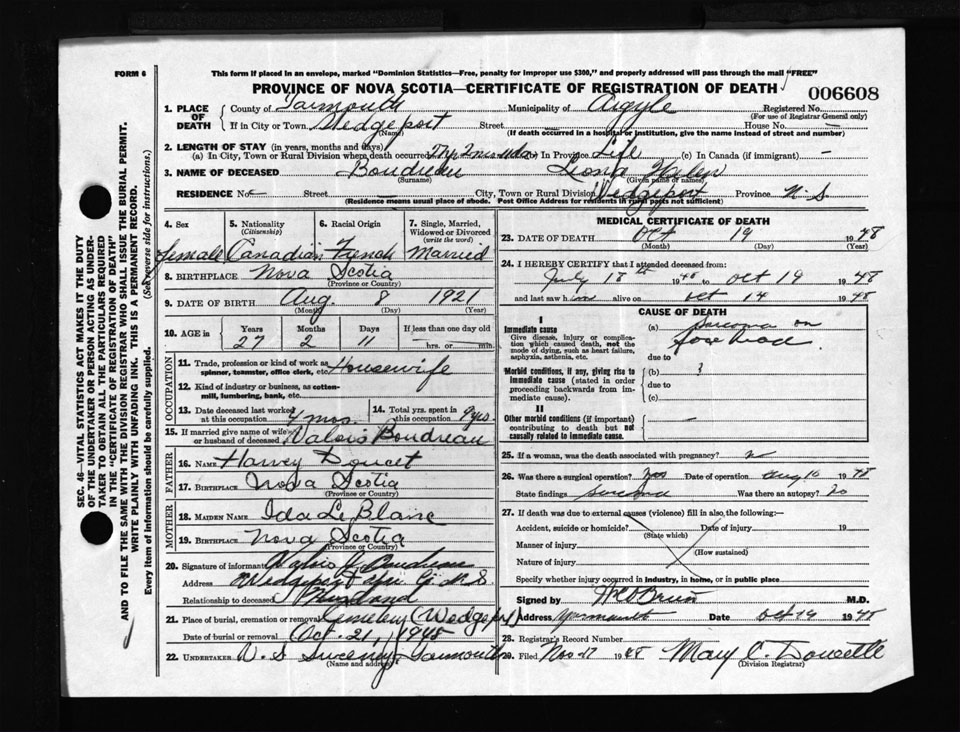 FORM 6
This form if placed in an envelope, marked "Dominion Statistics—Free, penalty for improper use $300," and properly addressed will pass through the mail "FREE"
PROVINCE OF NOVA SCOTIA—CERTIFICATE OF REGISTRATION OF DEATH
006608
1. PLACE OF DEATH County of Yarmouth Municipality of Argyle Registered No.
(For use of Registrar General only)
If in City or Town Wedgeport Street House No. —
(Name) (If death occurred in a hospital or institution, give the name instead of street and number)
2. LENGTH OF STAY (in years, months and days)
(a) In City, Town or Rural Division where death occurred (b) In Province Life (c) In Canada (if immigrant) —
3. NAME OF DECEASED Boudreau Leona
(Surname) (Given name or names)
RESIDENCE No. — Street City, Town or Rural Division Wedgeport Province N.S.
(Residence means usual place of abode. Post Office Address for residents in rural parts not sufficient)
4. Sex 5. Nationality (Citizenship) 6. Racial Origin 7. Single, Married, Widowed or Divorced (write the word)
Female Canadian French Married
8. BIRTHPLACE Nova Scotia
(Province or Country)
9. DATE OF BIRTH Aug. 8 1921
(Month) (Day) (Year)
10. AGE in Years Months Days If less than one day
27 2 11 hrs. or min.
OCCUPATION
11. Trade, profession or kind of work as spinner, teamster, office clerk, etc. Housewife
12. Kind of industry or business, as cotton-mill, lumbering, bank, etc.
13. Date deceased last worked at this occupation 4 mos. 14. Total yrs. spent in this occupation 9 yrs.
15. If married give name of wife or husband of deceased Valois Boudreau
FATHER
16. NAME Harvey Doucet
17. BIRTHPLACE Nova Scotia
(Province or Country)
MOTHER
18. MAIDEN NAME Ida Le Blanc
19. BIRTHPLACE Nova Scotia
(Province or Country)
20. Signature of informant Valois J. Boudreau
Address Wedgeport N.S.
Relationship to deceased Husband
21. Place of burial, cremation or removal Cemetery (Wedgeport)
Date of burial or removal Oct. 21, 1948
22. UNDERTAKER W. S. Sweeney Yarmouth
(Name and address)
MEDICAL CERTIFICATE OF DEATH
23. DATE OF DEATH Oct 19 1948
(Month) (Day) (Year)
24. I HEREBY CERTIFY that I attended deceased from:
July 18th 1948 to Oct 19 1948
and last saw h alive on Oct 14 1948
CAUSE OF DEATH
I
Immediate cause
Give disease, injury or complication which caused death, not the mode of dying, such as heart failure, asphyxia, asthenia, etc.
(a) Sarcoma on forehead
due to
Morbid conditions, if any, giving rise to immediate cause (stated in order proceeding backwards from immediate cause).
(b)
due to
(c)
II
Other morbid conditions (if important) contributing to death but not causally related to immediate cause. —
25. If a woman, was the death associated with pregnancy? no
26. Was there a surgical operation? Yes Date of operation Aug 16 1948
State findings sarcoma Was there an autopsy? no
27. If death was due to external causes (violence) fill in also, the following:—
Accident, suicide or homicide? Date of injury 19
(State which)
Manner of injury
(How sustained)
Nature of injury
Specify whether injury occurred in industry, in home, or in public place
Signed by O'Brien M.D.
Address Yarmouth Date Oct 19 1948
28. Registrar's Record Number
29. Filed Nov 17 1948 Mary C. Doucette
(Division Registrar)
SEC. 46—VITAL STATISTICS ACT MAKES IT THE DUTY
OF THE UNDERTAKER OR PERSON ACTING AS UNDER-
TAKER TO OBTAIN ALL THE PARTICULARS REQUIRED
IN THE "CERTIFICATE OF REGISTRATION OF DEATH"
AND TO FILE THE SAME WITH THE DIVISION REGISTRAR WHO SHALL ISSUE THE BURIAL PERMIT.
WRITE PLAINLY WITH UNFADING INK. THIS IS A PERMANENT RECORD.
Every item of information should be carefully supplied. (See reverse side for instructions.)